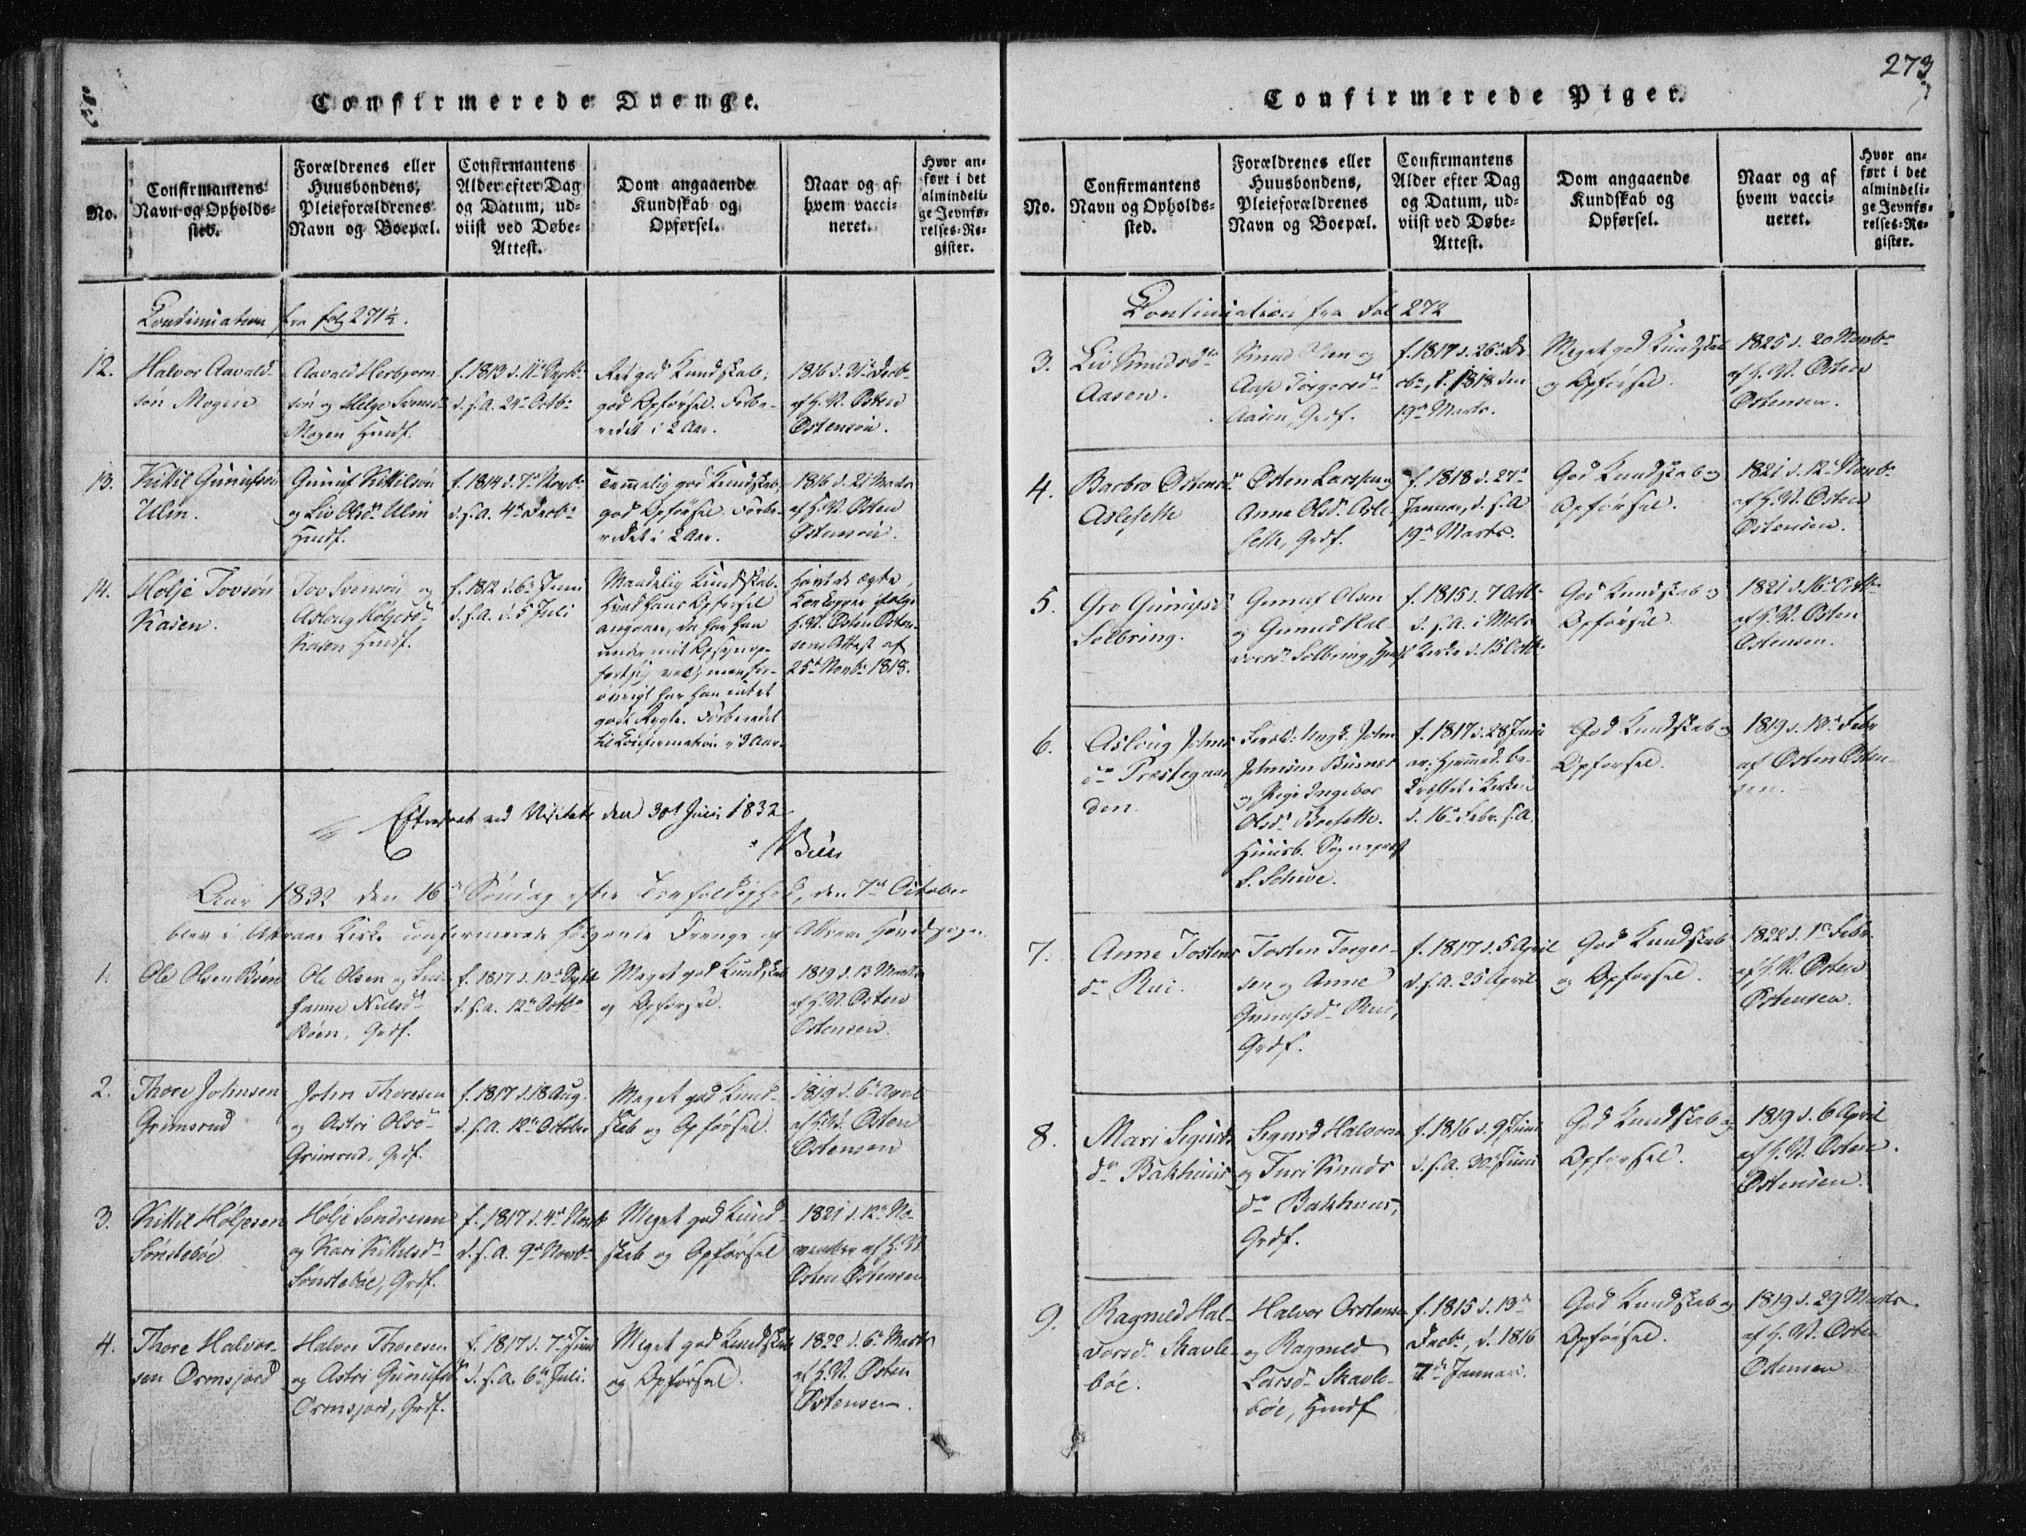 273
Confirmerede Drenge.
No.
Confirmantens
Navn og Opholds-
sted.
Forældrenes eller
Huusbondens,
Pleieforældrenes
Navn og Boepæl.
Confirmantens
Alder efter Dag
og Datum, ud-
viist ved Døbe-
Attest.
Dom angaaende
Kundskab og
Opførsel.
Naar og af
hvem vacci-
neret.
Hvor an-
ført i det
almindeli-
ge Jevnfø-
relses-Re-
gister.
Continuation fra fol 271½.
12.
Halvor Aavald-
søn Mogen
Aavald Herbjørn-
søn og Helge Svens
Mogen Huusf.
f. 1813 d. 11
d. s. A. 24 Octbr
Ret god Kundskab,
god Opførsel. Forbe-
redet i 2 Aar.
1816 d. 31 Decbr
af H. N. Østen
Østensøn.
13.
Kittil Gunufsøn
Ulin.
Gunuf Kittilsøn
og Liv Olsdr Ulin
Huusf.
f. 1814 d. 7 Novbr
d. s. A. 4 Decbr
Temmelig god Kundskab,
god Opførsel. Forbe-
redet i 2 Aar.
1816 d. 21 Marts
af H. N. Østen
Østensøn.
14.
Holje Tovsøn
Kasen.
Tov Svensøn og
Asloug Holjesdr
Kasen Huusf.
f. 1812 d. 6 Juni
d. s. A. d. 5 Juli
Maadelig Kundskab.
Hvad hans Opførsel
angaaer, da har han
under mit Opsyn op-
ført sig vel, men for-
øvrigt har han intet
godt Rygte. Forberedet
til Confirmation i 3 Aar.
Havt de ægte
Kokopper ifølge
H. N. Østen Østen-
sens Attest af
25 Novbr 1818.
Efterseet ved Visitats den 30t Juli 1832
Aar 1832 den 16 Søndag efter Trefoldighed, den 7de October
blev i Atraae Kirke confirmerede følgende Drenge af Atraae Hovedsogn.
1.
Ole Olsen Bøen
Ole Olsen og
Hanne Nielsdr
Bøen, Grdf.
f. 1817 d. 10 Sept
d. s. A. 12 Octbr
Meget god Kundskab
og Opførsel.
1819 d. 13 Marts
af H. N. Østen
Østensen.
2.
Thore Johnsen
Grimsrud
John Thoresen
og Astri Olsdr
Grimsrud, Grdf.
f. 1817 d. 18 Aug.
d. s. A. 12 October
Meget god Kund-
skab og Opførsel.
1819 d. 6 April
af H. N. Østen
Østensen
3.
Kittil Holjesen
Sønstebøe
Holje Sondresen
og Kari Kittelsdr
Sønstebøe, Grdf.
f. 1817 d. 4 Novb
d. s. A. 9 Novbr
Meget god Kund-
skab og Opførsel
1821 d. 12 No-
vember af H. N.
Østen Østensen
4.
Thore Halvor-
sen Ormsjord
Halvor Thoresen
og Astri Gunufsdr
Ormsjord, Grdf.
f. 1817 d. 7 Juni
d. s. A. 6 Juli.
Meget god Kundskab
og Opførsel.
1822 d. 6 Marts
af H. N. Østen
Østensen.
Confirmerede Piger.
No.
Confirmantens
Navn og Opholds-
sted.
Forældrenes eller
Huusbondens,
Pleieforældrenes
Navn og Boepæl.
Confirmantens
Alder efter Dag
og Datum, ud-
viist ved Døbe-
Attest.
Dom angaaende
Kundskab og
Opførsel.
Naar og af
hvem vacci-
neret.
Hvor an-
ført i det
almindeli-
ge Jevnfø-
relses-Re-
gister.
Continuation fra Fol 272
3.
Liv Knudsdr
Aasen.
Knud Olsen og
Aase Torgersdr
Aasen, Grdf.
f. 1817 d. 26 De-
cbr, d. 1818 den
19 Marts.
Meget god Kundskab
og Opførsel.
1825 d. 20 Novbr
af H. N. Østen
Østensen.
4.
Barbro Østensdr
Aslefeth
Østen Larssen og
Anne Olsdr Asle
feth, Grdf.
f. 1818 d. 27
Januar, d. s. A
19 Marts.
God Kundskab og
Opførsel.
1821 d. 12 Novbr
af H. N. Østen
Østensen.
5.
Gro Gunufsdr
Solbring.
Gunuf Olsen
og Gunild Hal-
vorsdr Solbring, Huusf
f. 1815 d. 7 Octb.
d. s. A. i Mels
Kirke d. 15 Octb.
God Kundskab og
Opførsel.
1821 d. 16 Octb.
af H. N. Østen
Østensen.
6.
Asloug Johns
dr Præstegaar
den.
John
Johnsen Busnes
og Pige Ingebor
Olsdr Boesette.
Huusb. Sognepræst
S. Schive.
f. 1817 d. 28 Juni
er Hjemmed. be-
kræftet i Kirken
d. 16 Febr. s. A.
God Kundskab og
Opførsel.
1819 d. 10 Febr
af Østen Østen-
sen.
7.
Anne Tostens
dr Rui.
Tosten Torger-
sen og Anne
Gunufsdr Rui,
Grdf.
f. 1817 d. 5 April
d. s. A. 25 April
God Kundskab
og Opførsel.
1822 d. 1 Febr.
af H. N. Østen
Østensen.
8.
Mari Sigurds
dr Bakhuus
Sigurd Halvorsen
og Turi Knuds
dr Bakhuus,
Grdf.
f. 1816 d. 9 Juni
d. s. A. 30 Juni
God Kundskab og
Opførsel.
1819 d. 6 April
af H. N. Østen
Østensen.
9.
Ragnild Hal-
vorsdr Skavle-
bøe.
Halvor Østensen
og Ragnild
Larsdr Skavle-
bøe, Huusf
f. 1815 d. 13
Decbr, d. 1816
7de Januar.
God Kundskab og
Opførsel.
1819 d. 29 Marts.
af H. N. Østen
Østensen